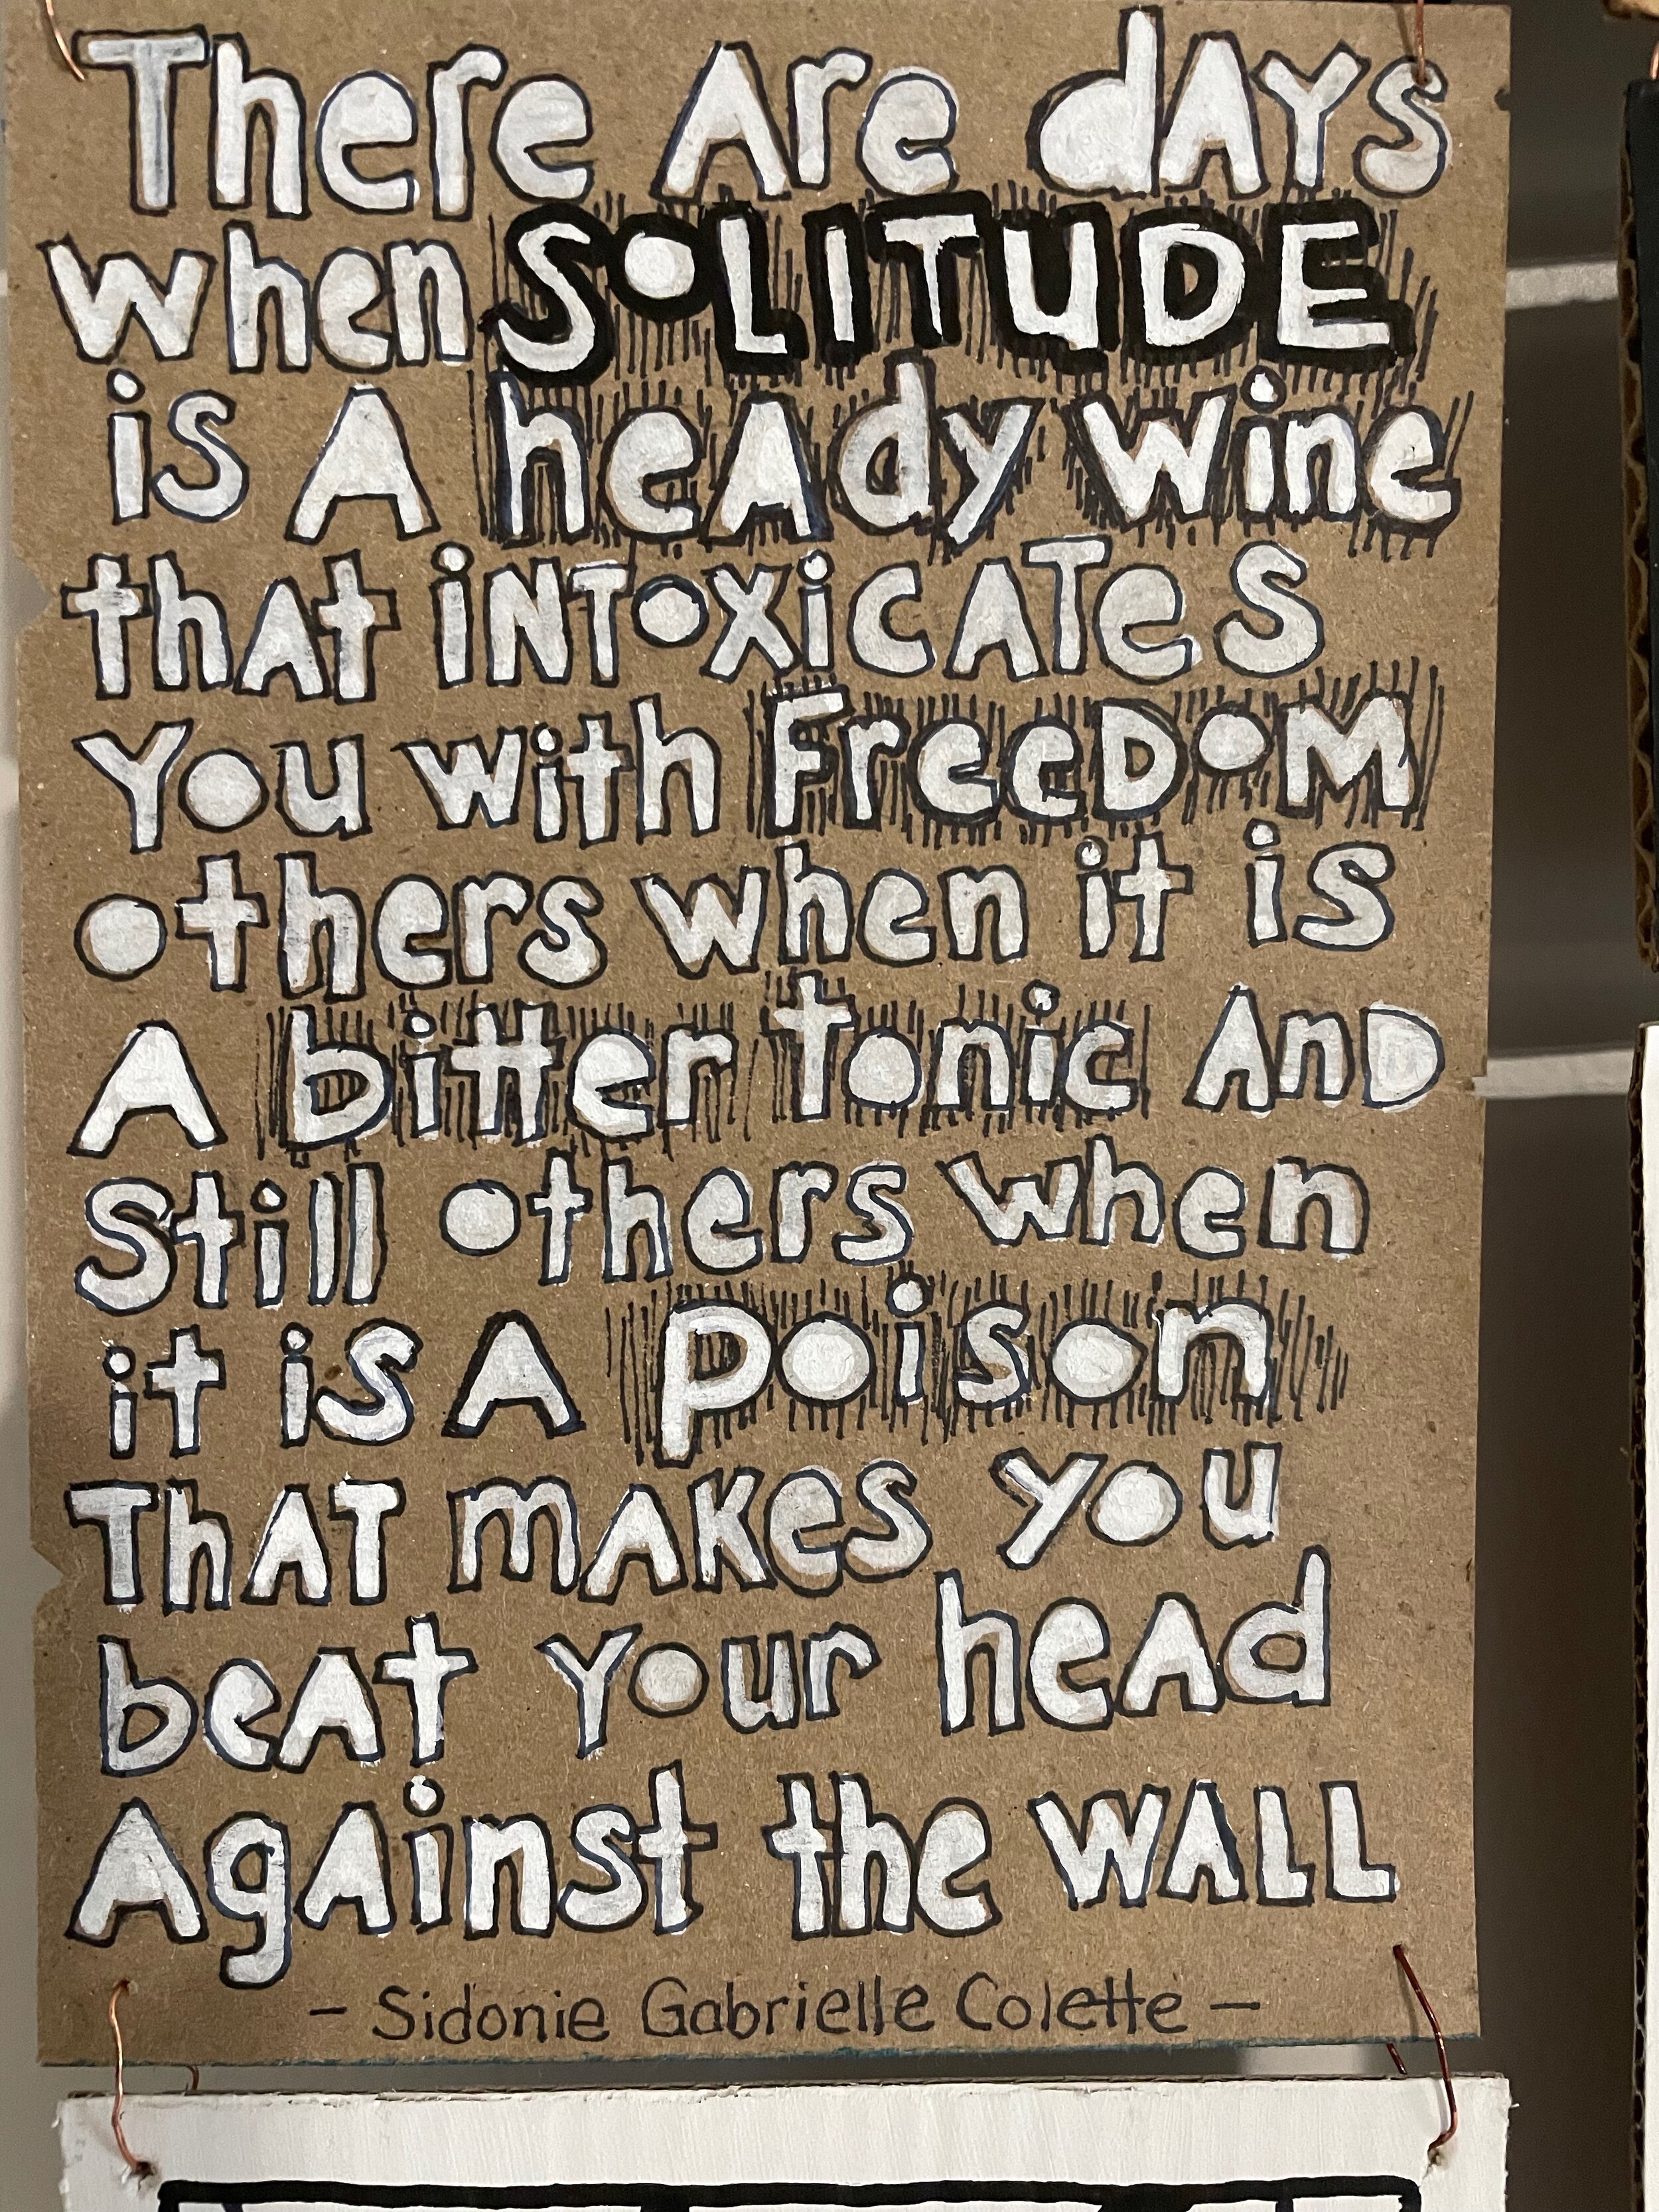 There Are dAYs
when SOLITUDE
is A heAdy wine
thAt iNTOXiCATes
You with FreeDOM
others when it is
A bitter tonic AnD
Still others when
it is A poison
ThAT mAKes you
beAt Your heAd
AgAinst the WALL
- Sidonie Gabrielle Colette -